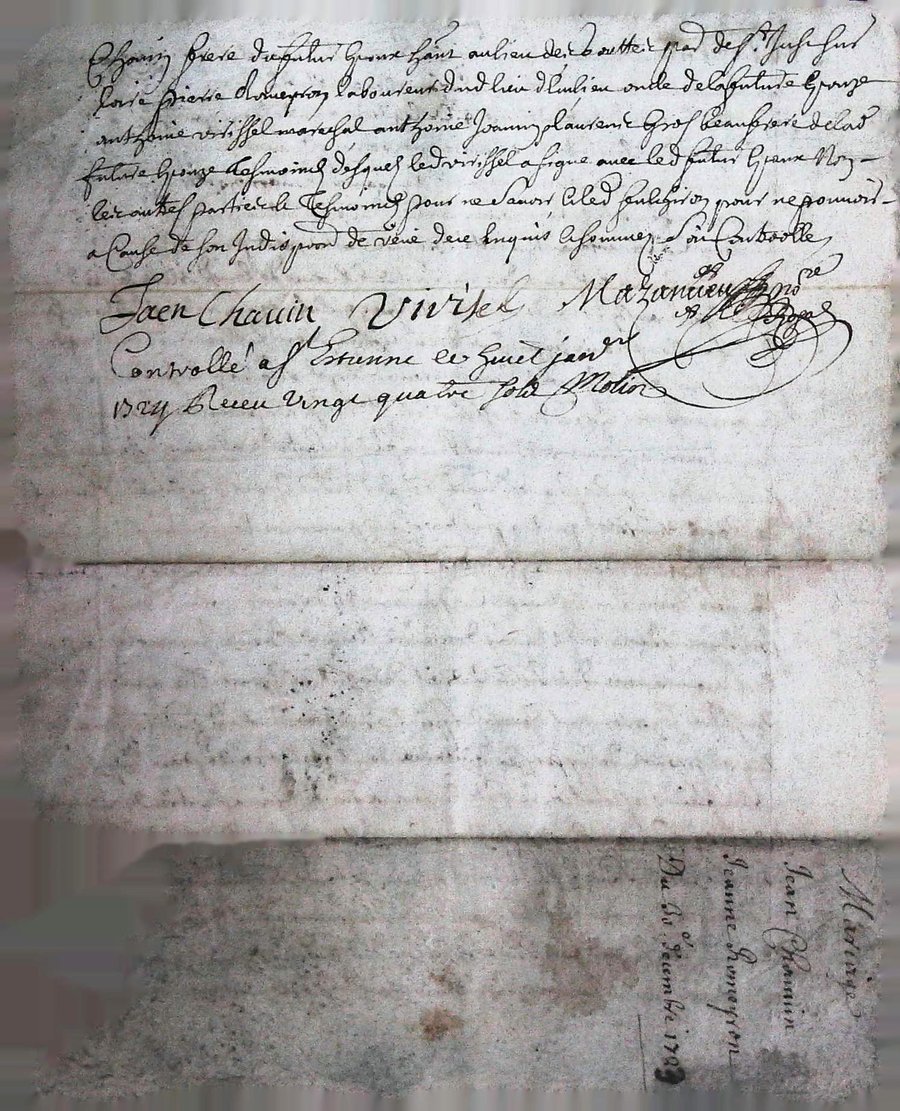 Chauin frere du futur epoux hant au lieu des par de st Just sus
Loire pierre Romeyron laboureur dud lieu oncle de la future epouze
anthoine virissel marechal anthoine Jouuin laurent Gros beaufrere de lad
future epouze tesmoings desquels led virissel a signe avec led futur epoux Non
les autres parties et tesmoings pour ne sauoir et led pour ne pouuoir
a Cause de son Indispoon de ce enquis et sommez soit Controolle
Jaen Chauin Virissel Mazandieu nore Royal
Controllé a st Estienne le huict janer
1724 Receu vingt quatre sols Molion
Mariage
Jean Chauuin
Jeanne Romeyron
Du 30 decembre 1723